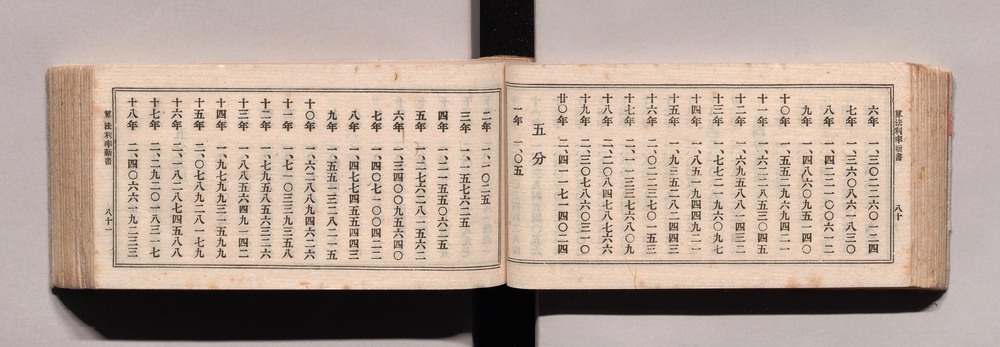 算法利率新書　八十
六年　一、三〇二二六〇一二四
七年　一、三六〇八六一八三〇
八年　一、四二二一〇〇六一二
九年　一、四八六〇九五一四〇
十〇年　一、五五二九六九四二一
十一年　一、六二二八五三〇四五
十二年　一、六九五八八一四三二
十三年　一、七七二一九六〇九七
十四年　一、八五一九四四九二一
十五年　一、九三五二八二四四三
十六年　二、〇二二三七〇一五三
十七年　二、一一三三七六八〇九
十八年　二、二〇八四七八七六六
十九年　二、三〇七八六〇三一〇
廿〇年　二、四一一七一四〇二四
五分
一年　一、〇五
二年　一、一〇二五
三年　一、一五七六二五
四年　一、二一五五〇六二五
五年　一、二七六二八一五六二
六年　一、三四〇〇九五六四〇
七年　一、四〇七一〇〇四二二
八年　一、四七七四五五四四三
九年　一、五五一三二八二一五
十〇年　一、六二八八九四六二六
十一年　一、七一〇三三九三五八
十二年　一、七九五八五六三二六
十三年　一、八八五六四九一四二
十四年　一、九七九九三一五九九
十五年　二、〇七八九二八一七九
十六年　二、一八二八七四五八八
十七年　二、二九二〇一八三一七
十八年　二、四〇六六一九二三三
算法利率新書　八十一